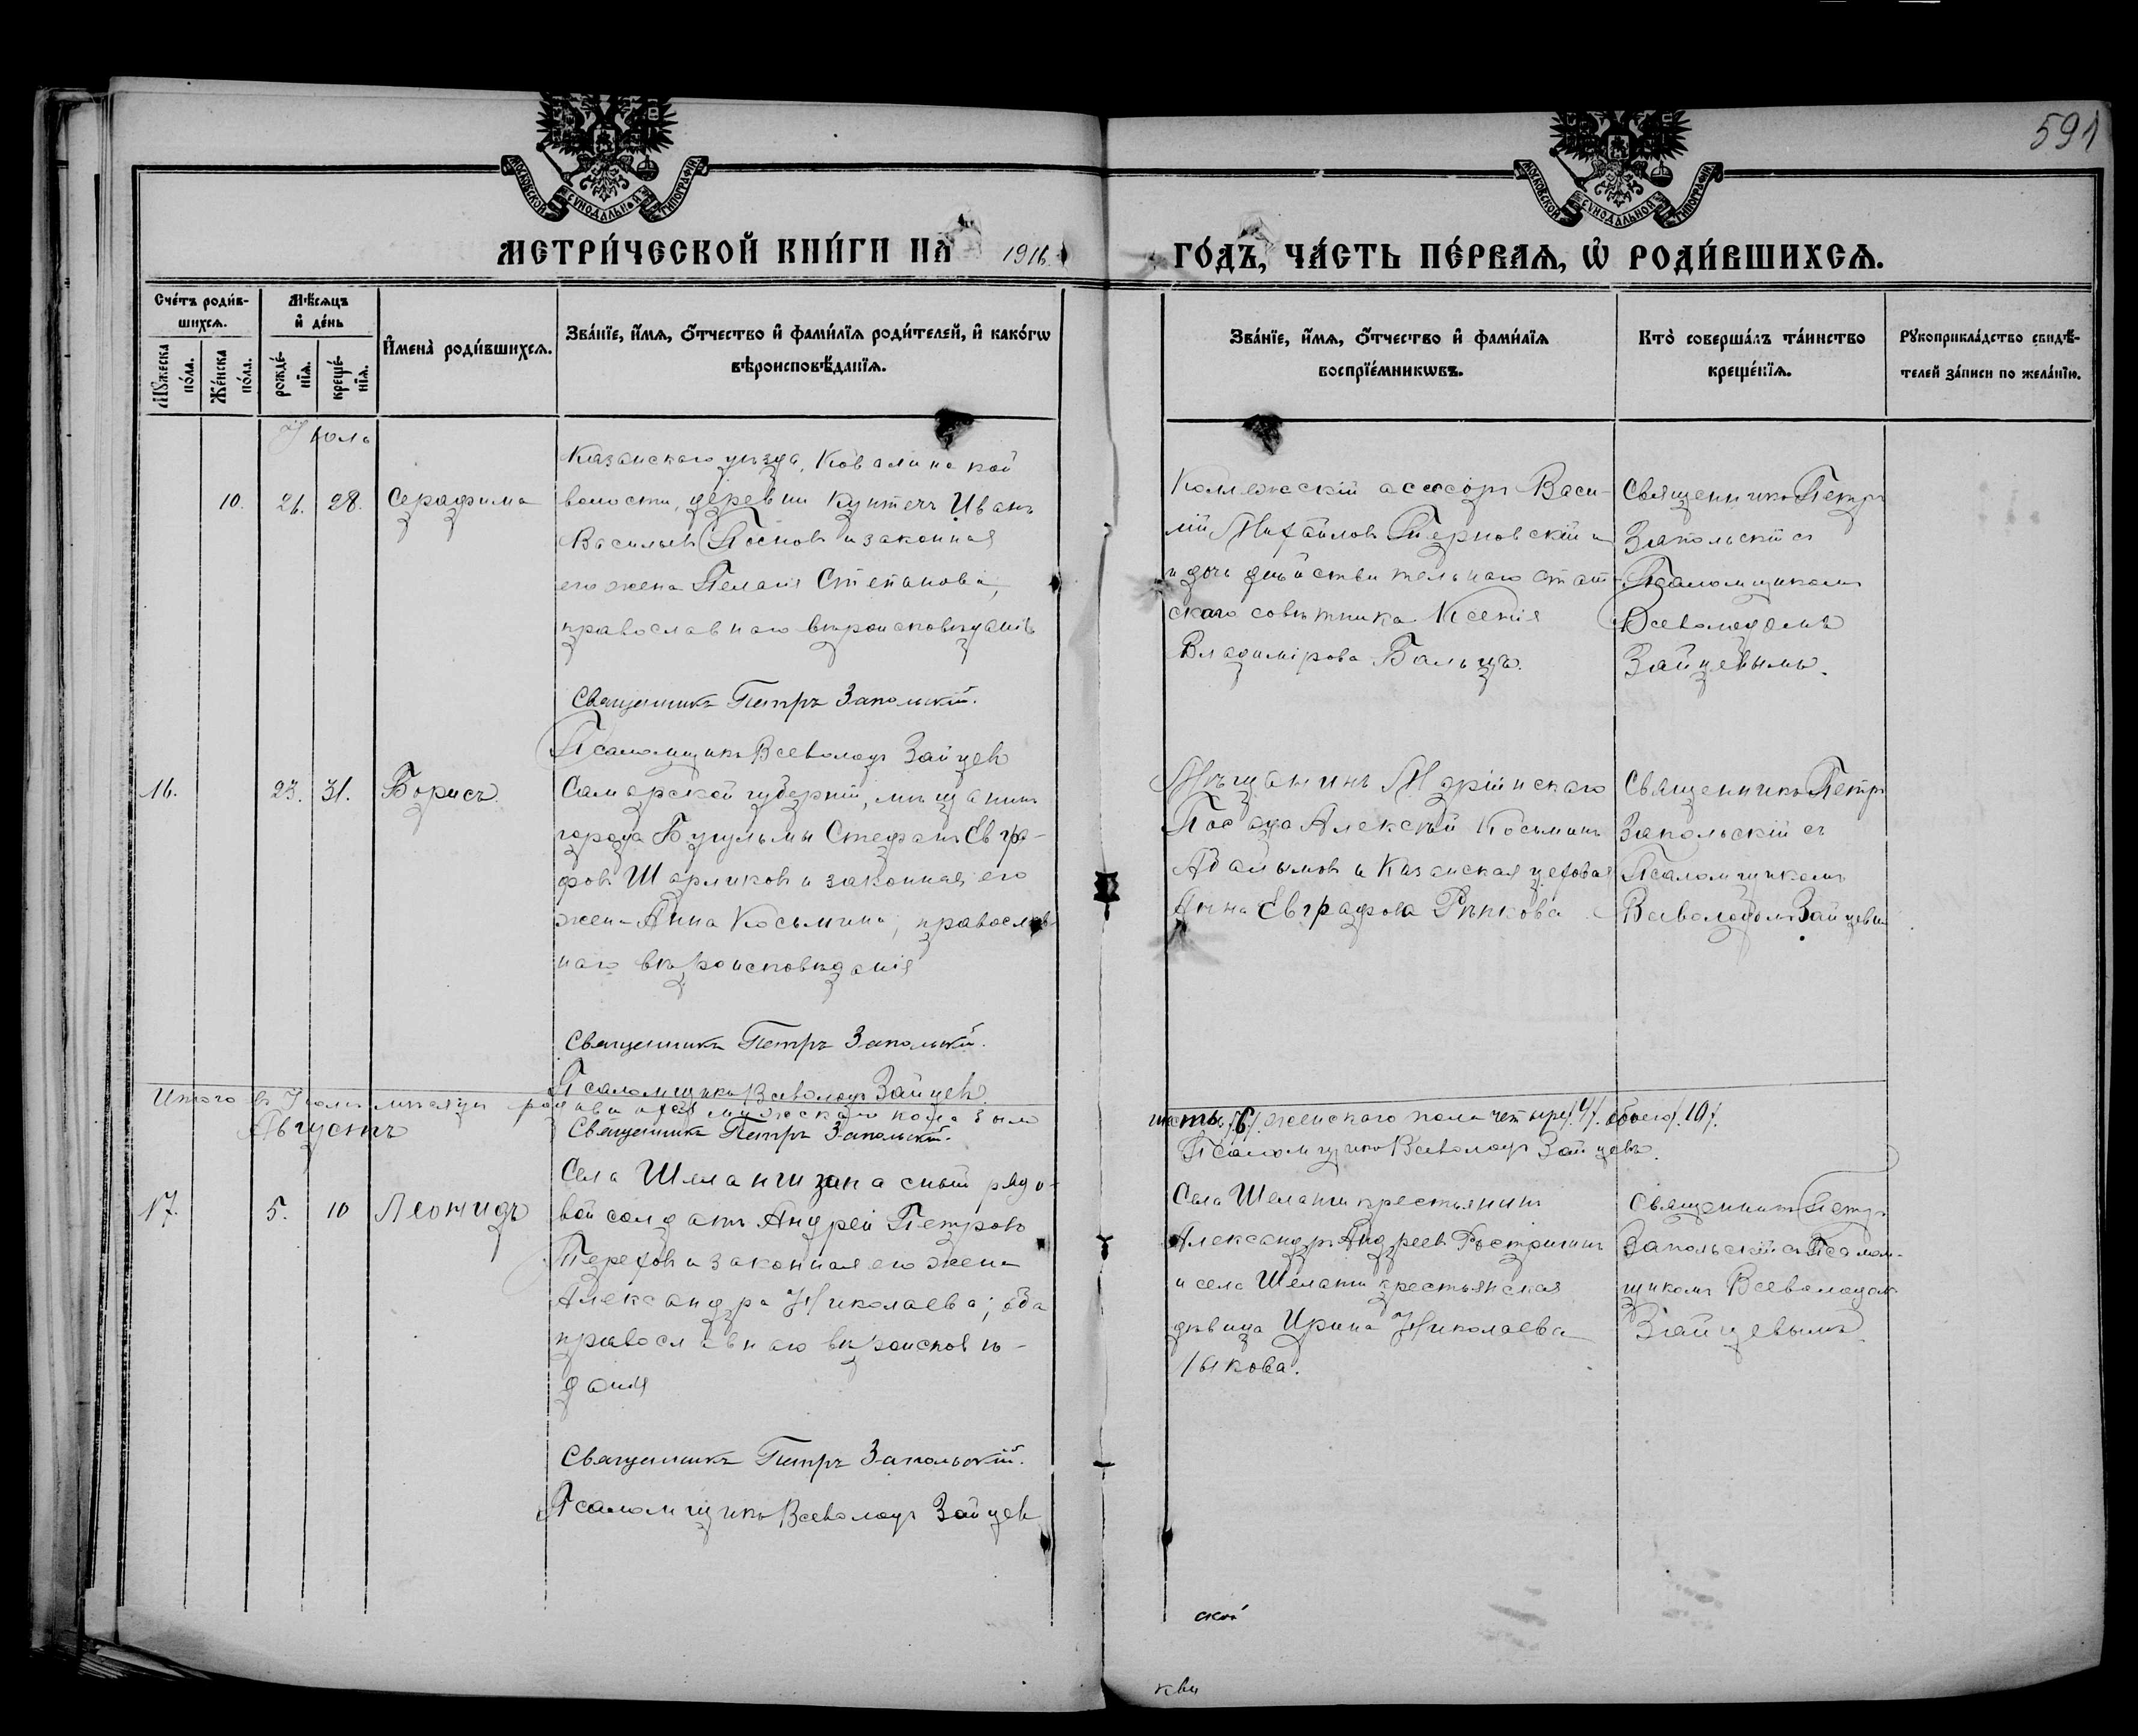 591
МОСКОВСКОЙ СУНОДАЛЬНОЙ ТИПОГРАФІИ
МОСКОВСКОЙ СУНОДАЛЬНОЙ ТИПОГРАФІИ
МЕТРИ́ЧЕСКОЙ КНИ́ГИ НА 1916.
ГО́ДЪ, ЧА́СТЬ ПЕ́РВАѦ, Ѡ҆ РОДИ́ВШИХСѦ.
Сче́тъ роди́в-
шихсѧ.
Мꙋ́жеска по́ла.
Же́нска по́ла.
Мѣ́сѧцъ
и҆ де́нь
рожде́-
нїѧ.
креще́-
нїѧ.
И҆мена̀ роди́вшихсѧ.
Зва́нїе, и҆́мѧ, ѻ҆́тчество и҆ фами́лїѧ роди́телей, и҆ како́гѡ
вѣроисповѣ́данїѧ.
Зва́нїе, и҆́мѧ, ѻ҆́тчество и҆ фами́лїѧ
воспрїе́мникѡвъ.
Кто̀ соверша́лъ та́инство
креще́нїѧ.
Рꙋкоприкла́дство свидѣ́-
телей за́писи по жела́нїю.
Іюль
10. 21. 28. Серафима
Казанскаго уѣзда, Ковалинской
волости, деревни Иванъ
Васильевъ и законная
его жена Пелагія Степанова,
православнаго вѣроисповѣданія
Священникъ Петръ Запольскій.
Псаломщикъ Всеволодъ Зайцевъ
Коллежскій асессоръ Васи-
лій Михайловъ Терновскій и
и дочь дѣйствительнаго стат-
скаго совѣтника Ксенія
Владимірова
Священникъ Петръ
Запольскій съ
Псаломщикомъ
Всеволодомъ
Зайцевымъ.
16. 23. 31. Борисъ
Самарской губерніи, мѣщанинъ
города Бугульмы Стефанъ Евгра-
фовъ Шарликовъ и законная его
жена Анна Косьмина, православ-
наго вѣроисповѣданія
Священникъ Петръ Запольскій.
Псаломщикъ Всеволодъ Зайцевъ
Мѣщанинъ Маріинскаго
Посада Алексѣй Косьминъ
и Казанская цеховая
Анна Евграфова Рѣпкова
Священникъ Петръ
Запольскій съ
Псаломщикомъ
Всеволодомъ Зайцевым
Итого въ Іюлѣ мѣсяцѣ родившихся мужескаго пола было
шесть /6/. женскаго пола четыре /.4/. обоего /.10/.
Священникъ Петръ Запольскій.
Псаломщикъ Всеволодъ Зайцевъ.
Августъ
17. 5. 10 Леонидъ
Села Шеланги запасный рядо-
вой солдатъ Андрей Петровъ
Тереховъ и законная его жена
Александра Николаева; оба
православнаго вѣроисповѣ-
данія
Священникъ Петръ Запольскій.
Псаломщикъ Всеволодъ Зайцевъ
Села Шеланги крестьянинъ
Александръ Андреевъ
и села Шеланги крестьянская
дѣвица Ирина Николаева
Быкова.
Священникъ Петръ
Запольскій съ Псалом-
щикомъ Всеволодом
Зайцевымъ
ской